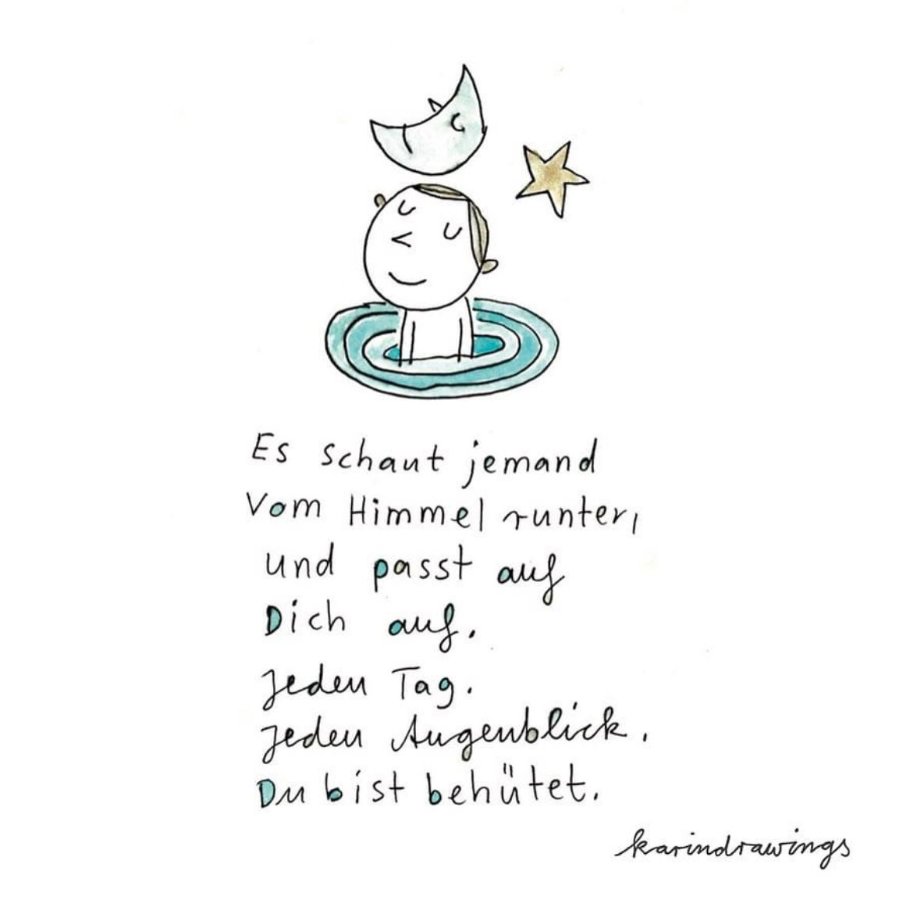 Es schaut jemand
Vom Himmel runter,
und passt auf
Dich auf.
Jeden Tag.
Jeden Augenblick.
Du bist behütet.
karindrawings